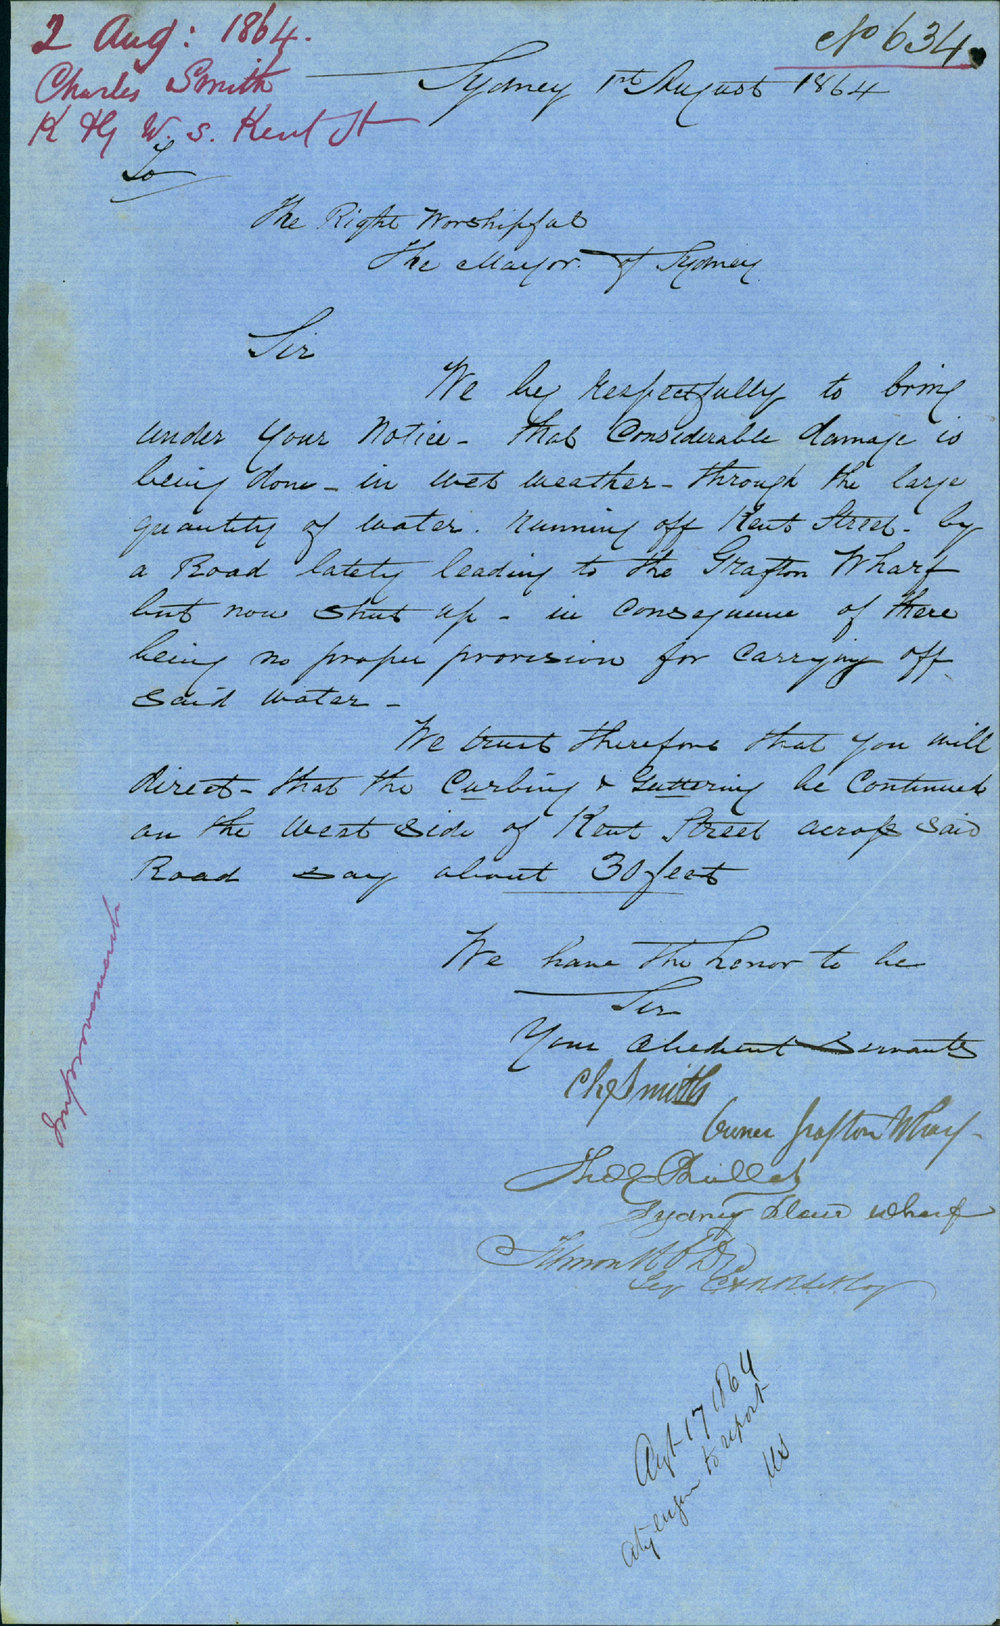 2 Aug: 1864.
Charles Smith
K & G W. S. Kent St
No 634.
Sydney 1st August 1864
To
The Right Worshipful
The Mayor of Sydney
Sir
We beg respectfully to bring
under your Notice - that Considerable damage is
being done - in wet weather - through the large
quantity of water running off Kent Street - by
a Road lately leading to the Grafton Wharf
but now shut up - in Consequence of there
being no proper provision for Carrying off
said water -
We trust therefore that you will
direct - that the Curbing & Guttering be Continued
on the West side of Kent Street across said
Road say about 30 feet
We have the honor to be
Sir
Your Obedient Servants
Chs Smith
Owner Grafton Wharf
Thos
Sydney Flour Wharf
Improvement
Augt 17 1864
City Engr to report